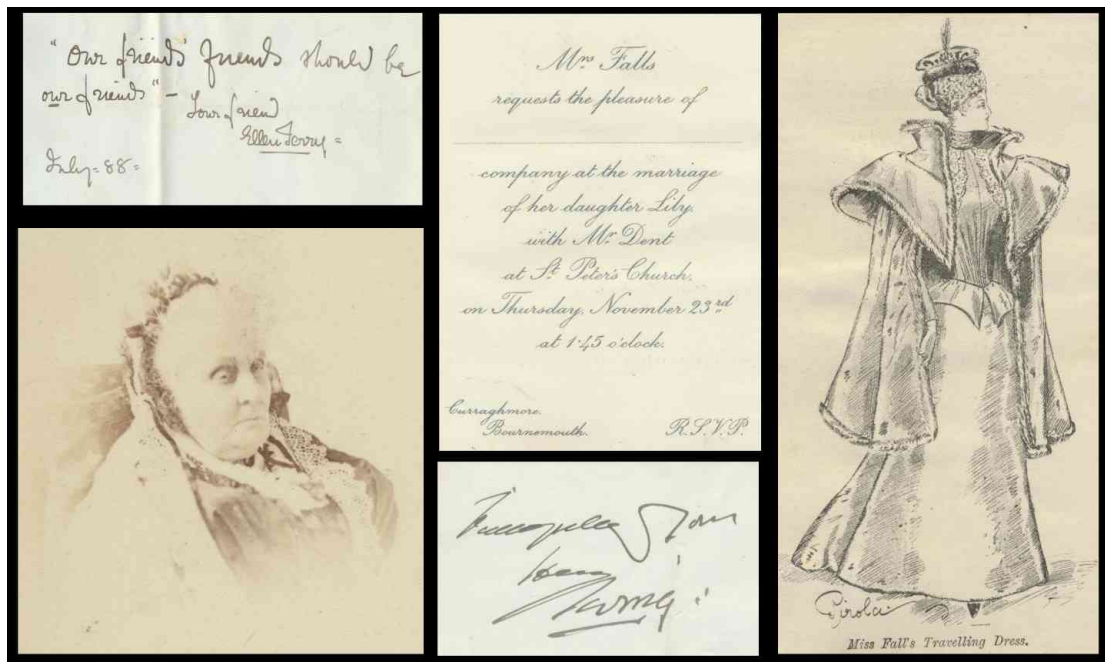 "Our friends' friends should be
our friends" –
Your friend
Ellen Terry =
July = 88 =
Mrs Falls
requests the pleasure of
company at the marriage
of her daughter Lily.
with Mr Dent
at St Peter's Church.
on Thursday, November 23rd
at 1.45 o'clock.
Curraghmore.
Bournemouth.
R.S.V.P.
Henry
Irving
Girola
Miss Fall's Travelling Dress.